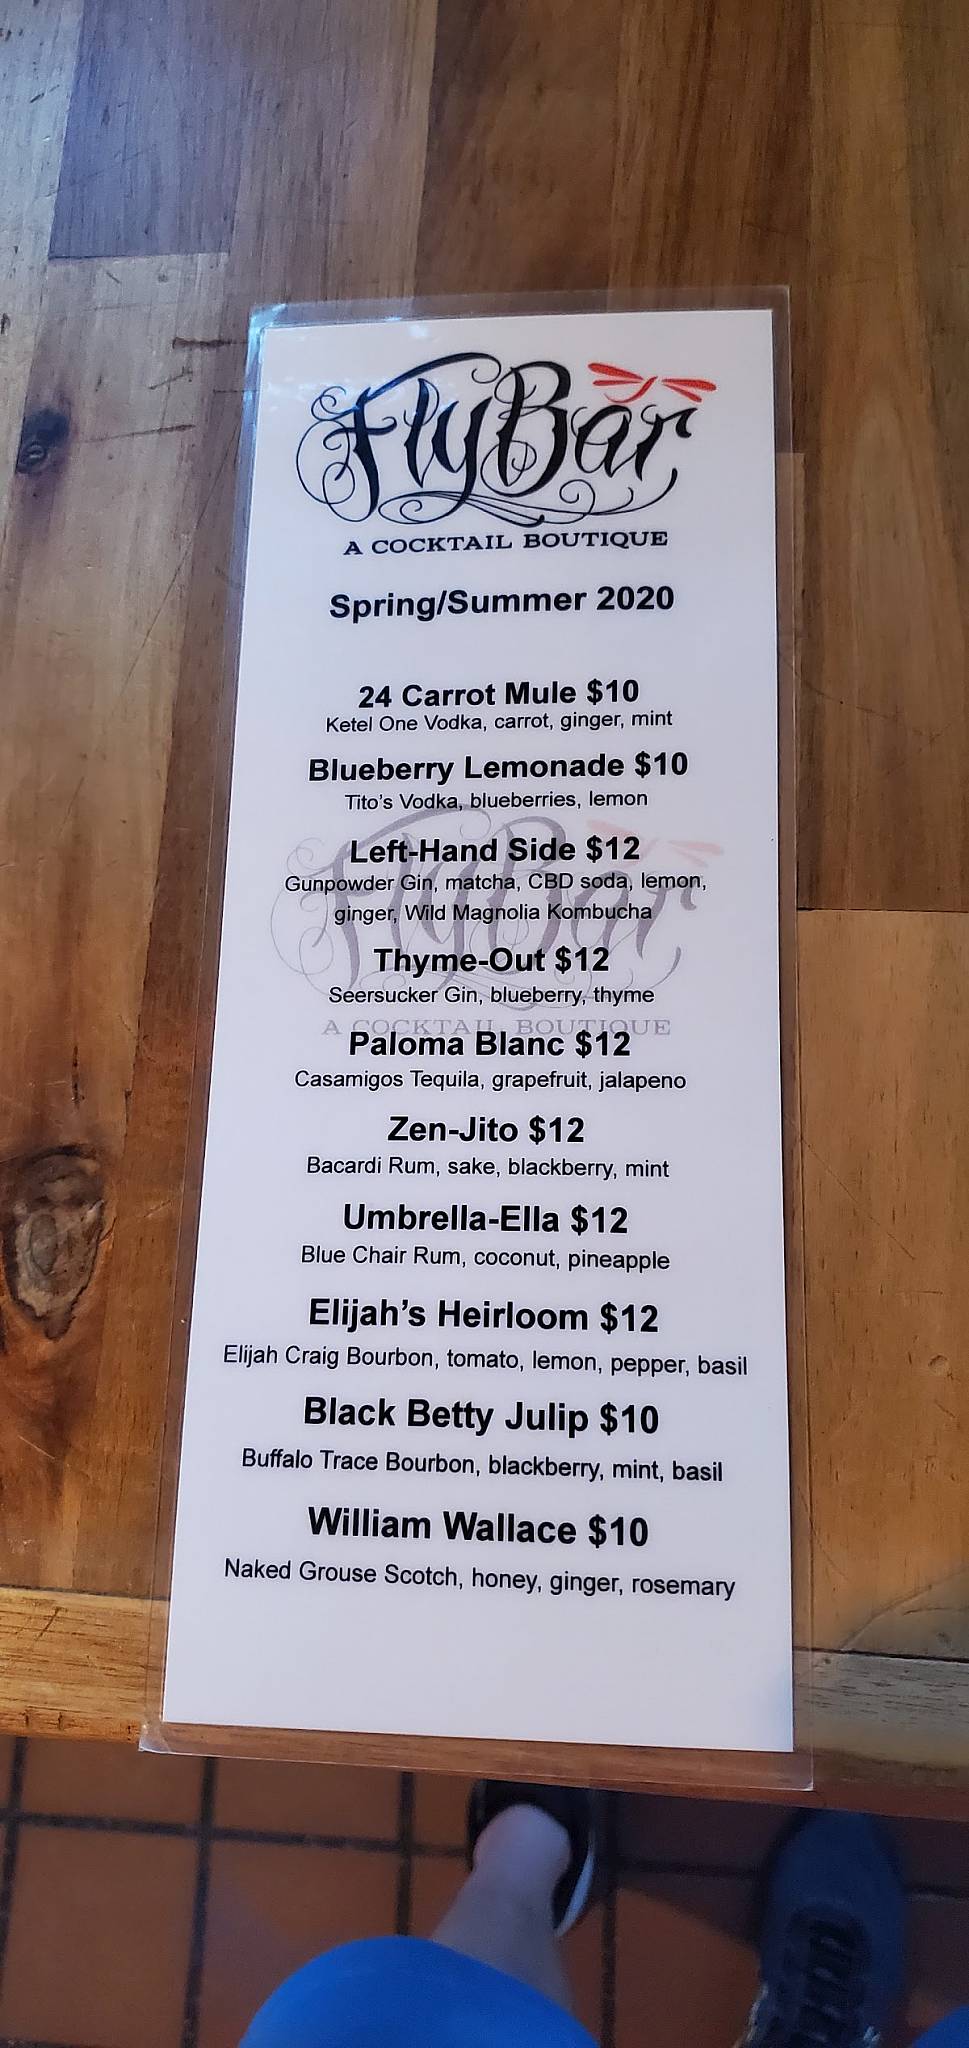 FlyBar
A COCKTAIL BOUTIQUE
Spring/Summer 2020
24 Carrot Mule $10
Ketel One Vodka, carrot, ginger, mint
Blueberry Lemonade $10
Tito's Vodka, blueberries, lemon
FlyBar
Left-Hand Side $12
Gunpowder Gin, matcha, CBD soda, lemon,
ginger, Wild Magnolia Kombucha
Thyme-Out $12
Seersucker Gin, blueberry, thyme
A COCKTAIL BOUTIQUE
Paloma Blanc $12
Casamigos Tequila, grapefruit, jalapeno
Zen-Jito $12
Bacardi Rum, sake, blackberry, mint
Umbrella-Ella $12
Blue Chair Rum, coconut, pineapple
Elijah's Heirloom $12
Elijah Craig Bourbon, tomato, lemon, pepper, basil
Black Betty Julip $10
Buffalo Trace Bourbon, blackberry, mint, basil
William Wallace $10
Naked Grouse Scotch, honey, ginger, rosemary